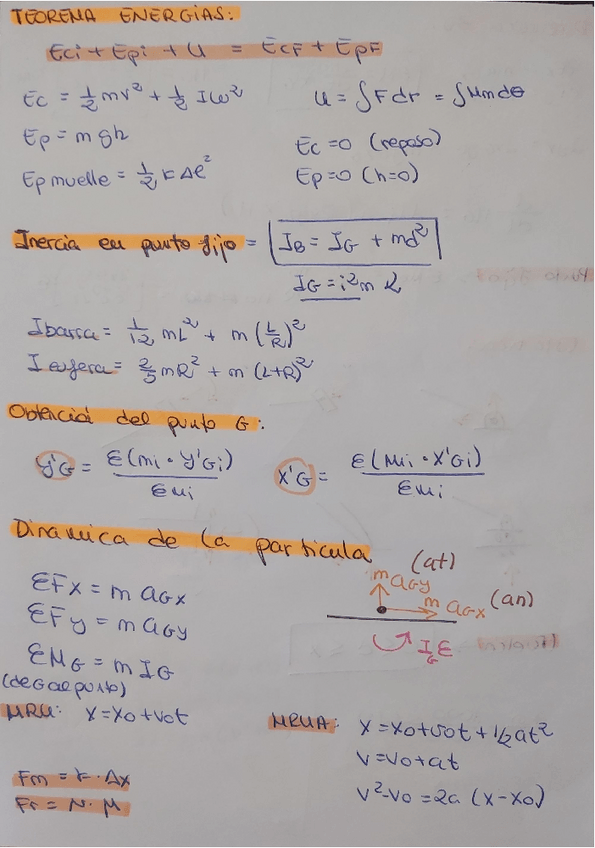 TEOREMA ENERGÍAS:
Eci + Epi + U = EcF + EpF
Ec = 1/2 mv² + 1/2 Iω²    U = ∫F dr = ∫Mm dθ
Ep = m g h    Ec = 0 (reposo)
Ep muelle = 1/2 k Δl²    Ep = 0 (h=0)
Inercia en punto fijo = IB = IG + md²
IG = i² m
Ibarra = 1/12 mL² + m (L/2)²
I esfera = 2/5 mR² + m (L+R)²
Obtenciá del punto G:
y'G = Σ(mi · y'Gi) / Σmi    x'G = Σ(mi · x'Gi) / Σmi
Dinámica de la partícula
(at)
ΣFx = m aGx    m aGy
m aGx (an)
ΣFy = m aGy
IG ε
ΣMG = m IG
(de G al punto)
MRU: x = xo + vot    MRUA: x = xo + vot + 1/2 at²
v = vo + at
Fm = k · Δx
v² - vo = 2a (x - xo)
Fr = N · μ